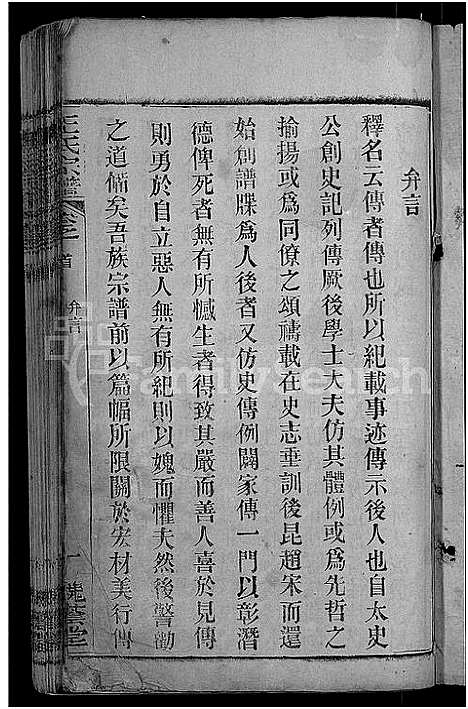 弁言
釋名云傳者傳也所以紀載事迹傳示後人也自太史
公創史記列傳厥後學士大夫仿其體例或爲先哲之
揄揚或爲同僚之頌禱載在史志垂訓後昆趙宋而還
始創譜牒爲人後者又仿史傳例闢家傳一門以彰潛
德俾死者無有所憾生者得致其嚴而善人喜於見傳
則勇於自立惡人無有所紀則以媿而懼夫然後警勸
之道備矣吾族宗譜前以篇幅所限關於宏材美行傳
王氏宗譜
卷之首
弁言
一
堂
FamilySearch